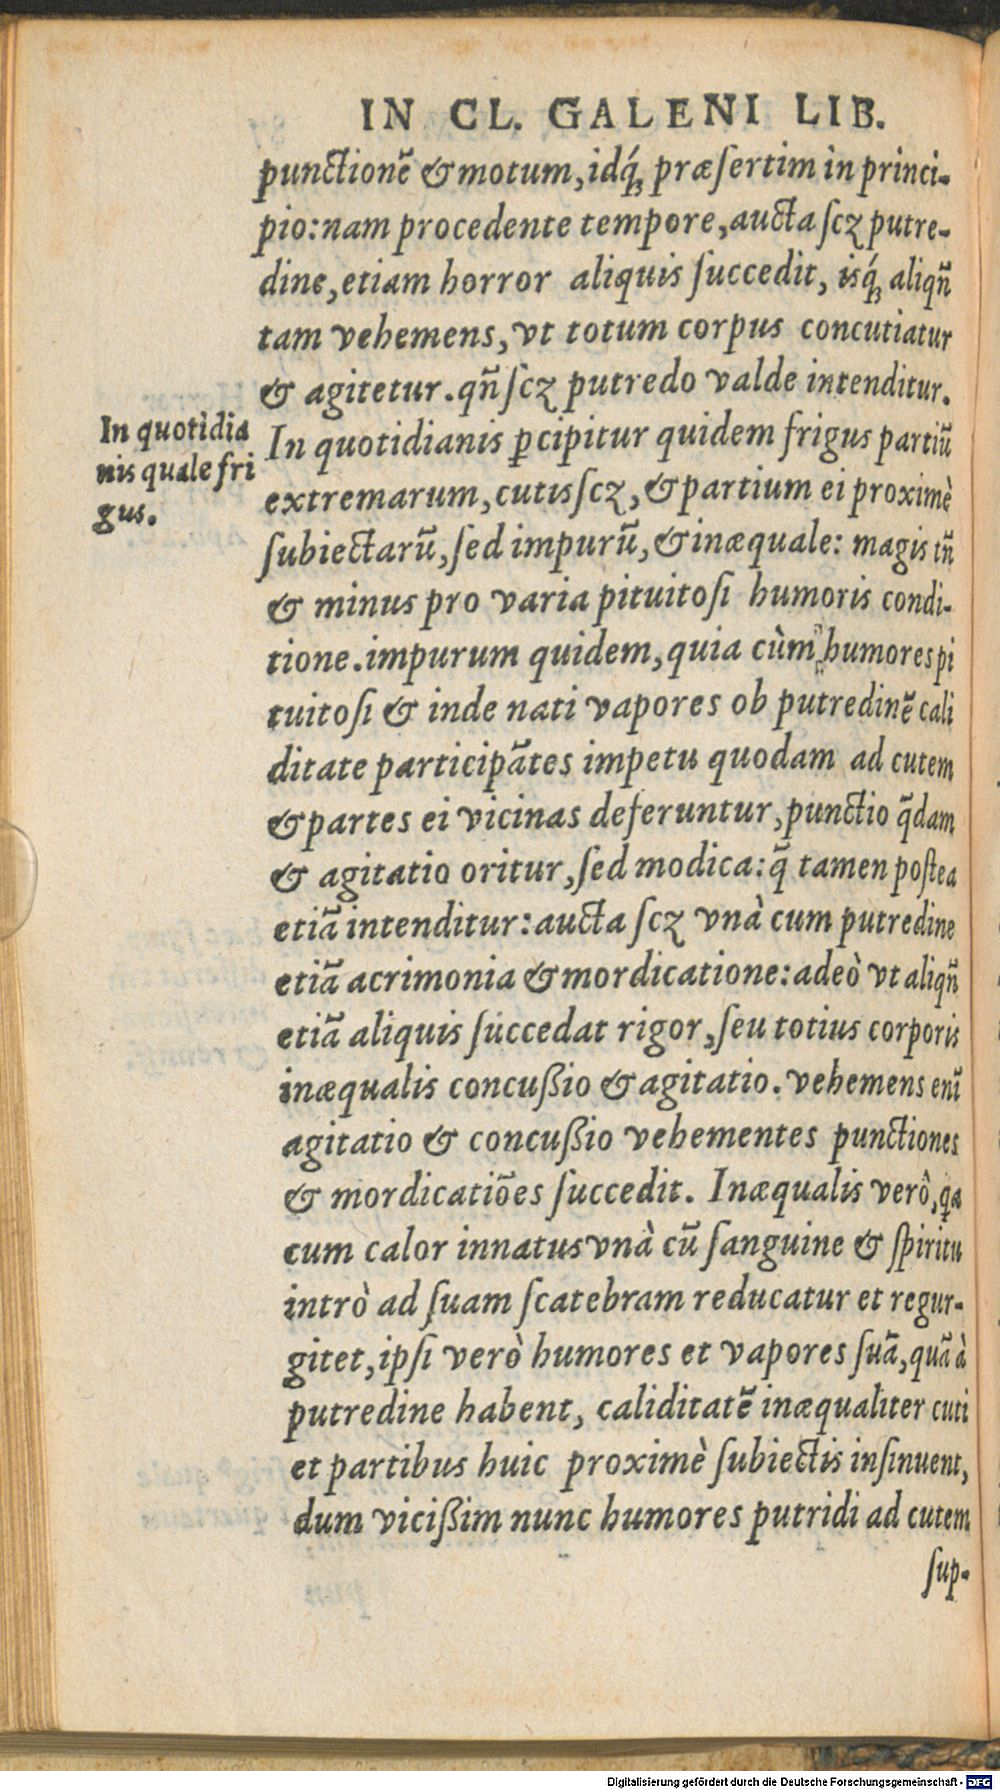 IN CL. GALENI LIB.
punctionẽ & motum, idq́; præſertim in princi-
pio: nam procedente tempore, aucta ſcꝫ putre-
dine, etiam horror aliquis ſuccedit, isq́; aliqñ
tam vehemens, vt totum corpus concutiatur
& agitetur. qñ ſcꝫ putredo valde intenditur.
In quotidia
nis quale fri
gus.
In quotidianis ꝑcipitur quidem frigus partiũ
extremarum, cutis ſcꝫ, & partium ei proximè
ſubiectarũ, ſed impurũ, & inæquale: magis tñ
& minus pro varia pituitoſi humoris condi-
tione. impurum quidem, quia cùm humores pi
tuitoſi & inde nati vapores ob putredinẽ cali
ditate participãtes impetu quodam ad cutem
& partes ei vicinas deferuntur, punctio q̃dam
& agitatio oritur, ſed modica: q̃ tamen poſtea
etiã intenditur: aucta ſcꝫ vnà cum putredine
etiã acrimonia & mordicatione: adeò vt aliqñ
etiã aliquis ſuccedat rigor, ſeu totius corporis
inæqualis concuſsio & agitatio. vehemens enĩ
agitatio & concuſsio vehementes punctiones
& mordicatiões ſuccedit. Inæqualis verò, qa
cum calor innatus vnà cũ ſanguine & ſpiritu
intrò ad ſuam ſcatebram reducatur et regur-
gitet, ipſi verò humores et vapores ſuã, quã à
putredine habent, caliditatẽ inæqualiter cuti
et partibus huic proximè ſubiectis inſinuent,
dum viciſsim nunc humores putridi ad cutem
ſup-
Digitalisierung gefördert durch die Deutsche Forschungsgemeinschaft - DFG